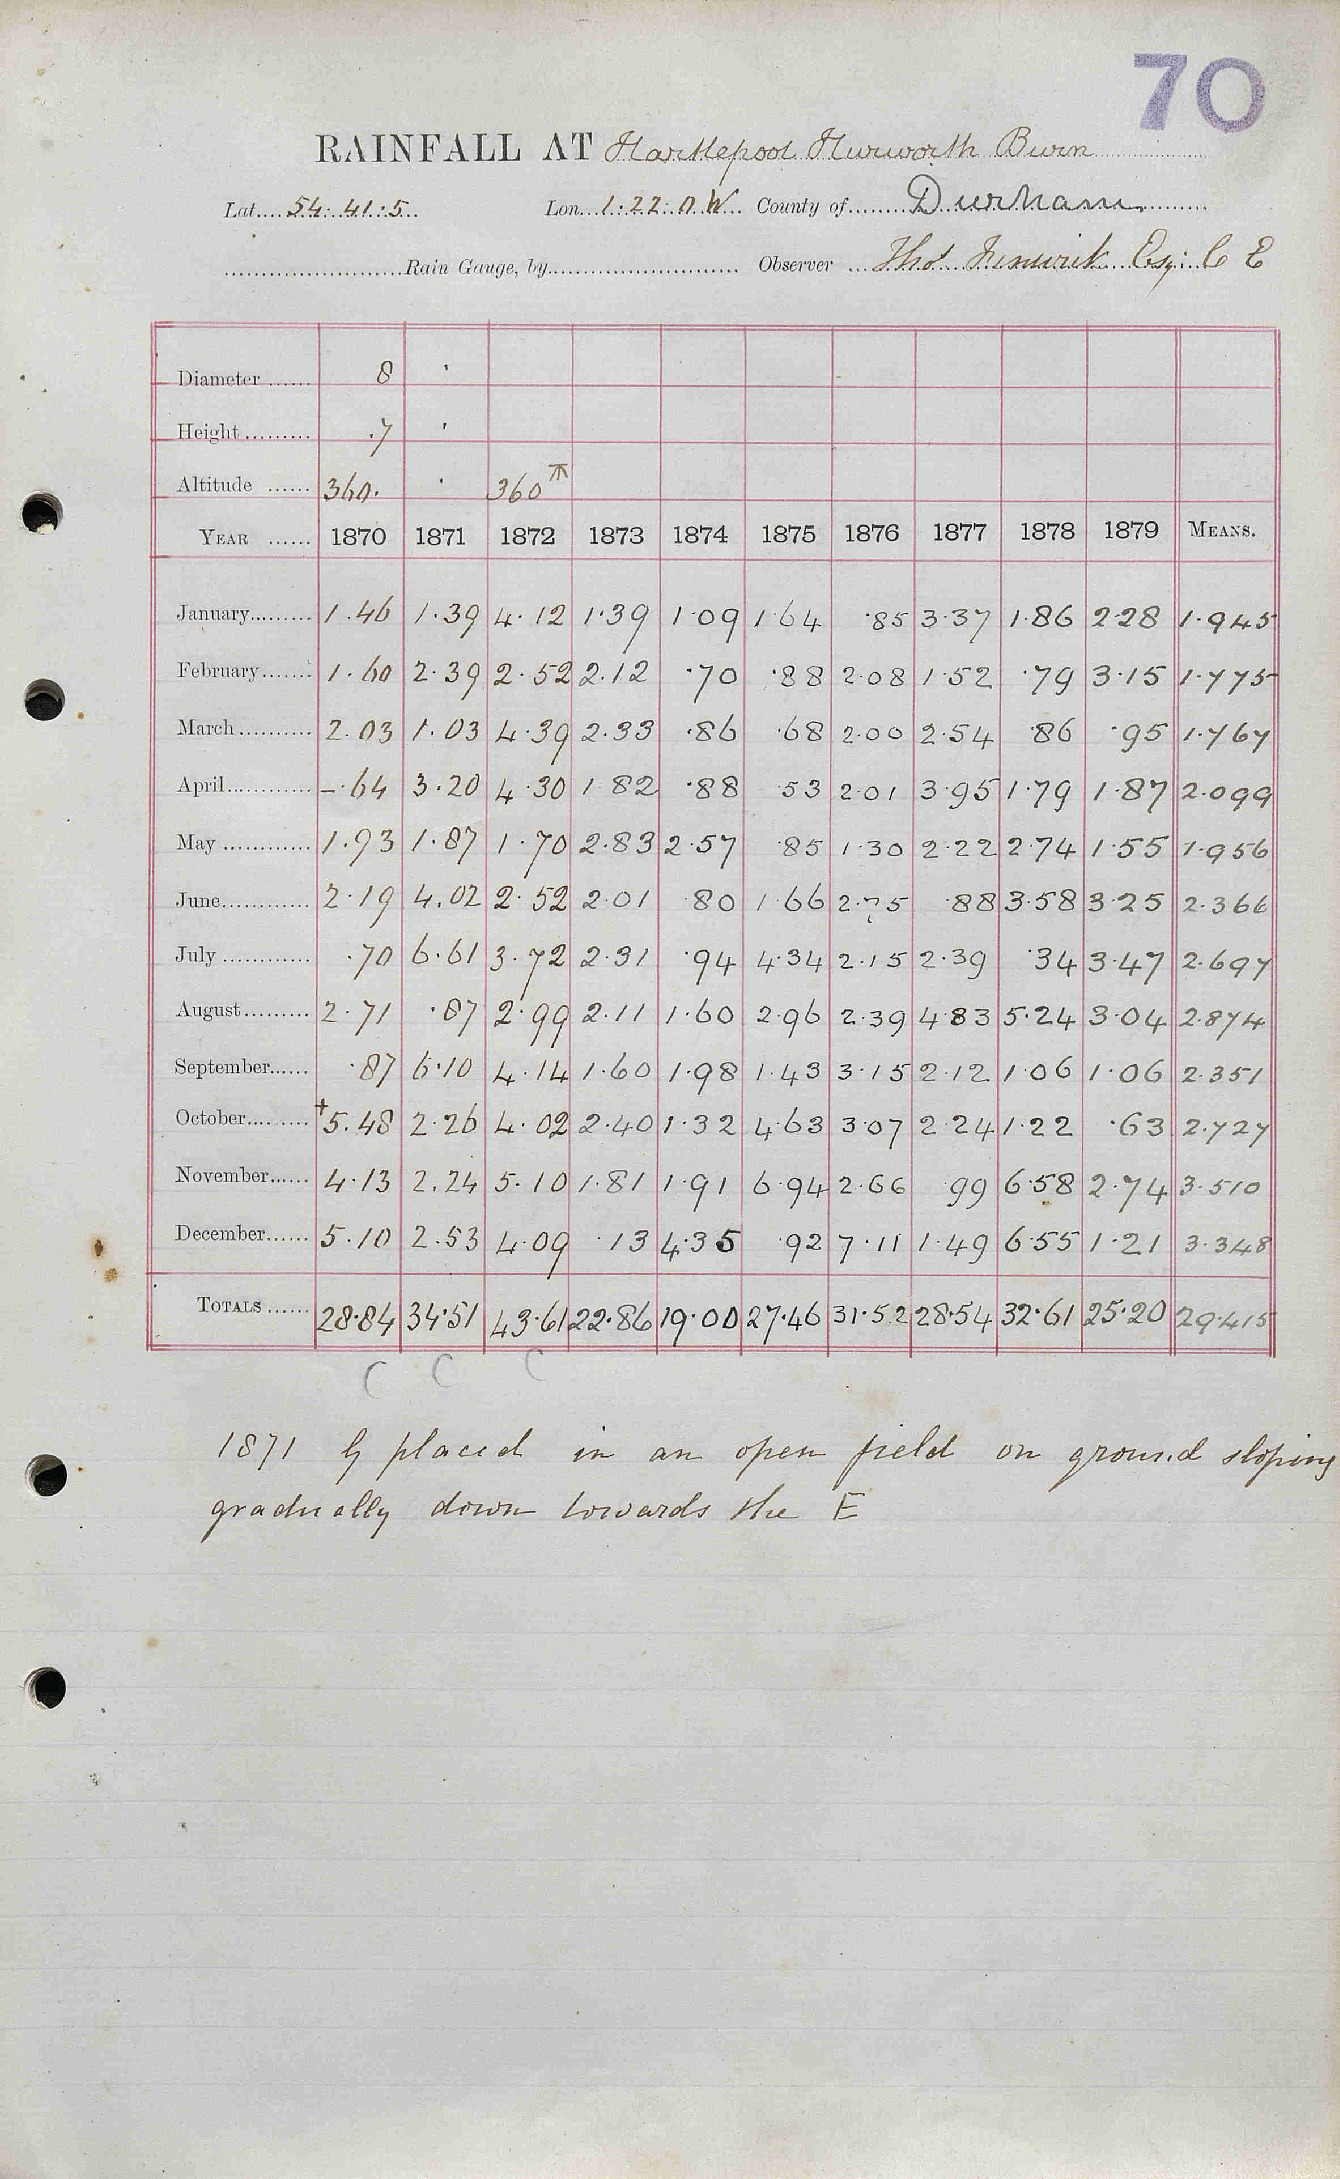 70
RAINFALL AT Hartlepool Hurworth Burn
Lat. 54. 41. 5 Lon. 1. 22. 0 W County of Durham
Rain Gauge, by Observer Thos Fenwick Esq: C E
Diameter 8 ·
Height .7 ·
Altitude 360. · 360 ⊼
YEAR 1870 1871 1872 1873 1874 1875 1876 1877 1878 1879 MEANS.
January 1.46 1.39 4.12 1.39 1.09 1.64 .85 3.37 1.86 2.28 1.945
February 1.60 2.39 2.52 2.12 .70 .88 2.08 1.52 .79 3.15 1.775
March 2.03 1.03 4.39 2.33 .86 .68 2.00 2.54 .86 .95 1.767
April –.64 3.20 4.30 1.82 .88 .53 2.01 3.95 1.79 1.87 2.099
May 1.93 1.87 1.70 2.83 2.57 .85 1.30 2.22 2.74 1.55 1.956
June 2.19 4.02 2.52 2.01 .80 1.66 2.75 .88 3.58 3.25 2.366
July .70 6.61 3.72 2.31 .94 4.34 2.15 2.39 .34 3.47 2.697
August 2.71 .87 2.99 2.11 1.60 2.96 2.39 4.83 5.24 3.04 2.874
September .87 6.10 4.14 1.60 1.98 1.43 3.15 2.12 1.06 1.06 2.351
October †5.48 2.26 4.02 2.40 1.32 4.63 3.07 2.24 1.22 .63 2.727
November 4.13 2.24 5.10 1.81 1.91 6.94 2.66 .99 6.58 2.74 3.510
December 5.10 2.53 4.09 .13 4.35 .92 7.11 1.49 6.55 1.21 3.348
TOTALS 28.84 34.51 43.61 22.86 19.00 27.46 31.52 28.54 32.61 25.20 29.415
C C C
1871 G placed in an open field on ground sloping
gradually down towards the E